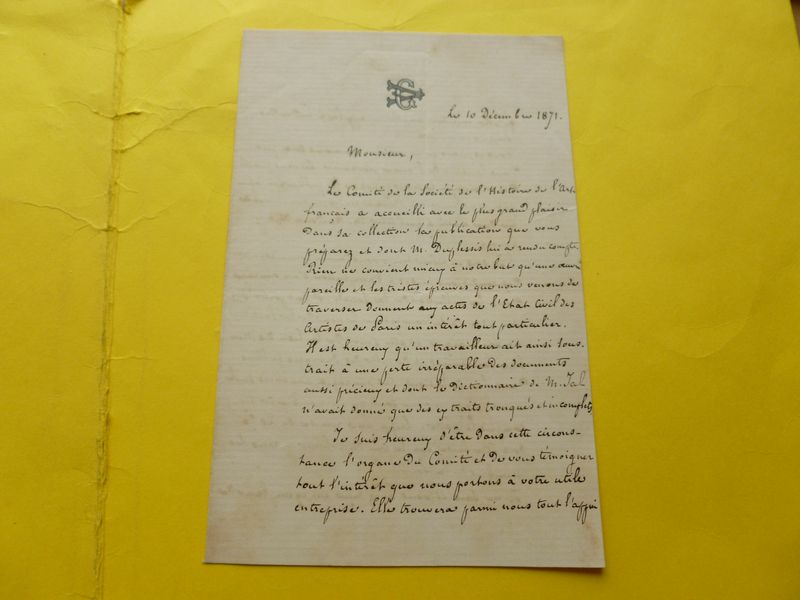 Le 10 Décembre 1871.
Monsieur,
Le Comité de la Société de l'Histoire de l'Art
français a accueilli avec le plus grand plaisir
dans sa collection la publication que vous
préparez et dont M. Duplessis lui a rendu compte.
Rien ne convient mieux à notre but qu'une œuvre
pareille et les tristes épreuves que nous venons de
traverser donnent aux actes de l'Etat Civil des
Artistes de Paris un intérêt tout particulier.
Il est heureux qu'un travailleur ait ainsi sous-
trait à une perte irréparable des documents
aussi précieux et dont le Dictionnaire de M. Jal
n'avait donné que des extraits tronqués et incomplets
Je suis heureux d'être dans cette circons-
tance l'organe du Comité et de vous témoigner
tout l'intérêt que nous portons à votre utile
entreprise. Elle trouvera parmi nous tout l'appui